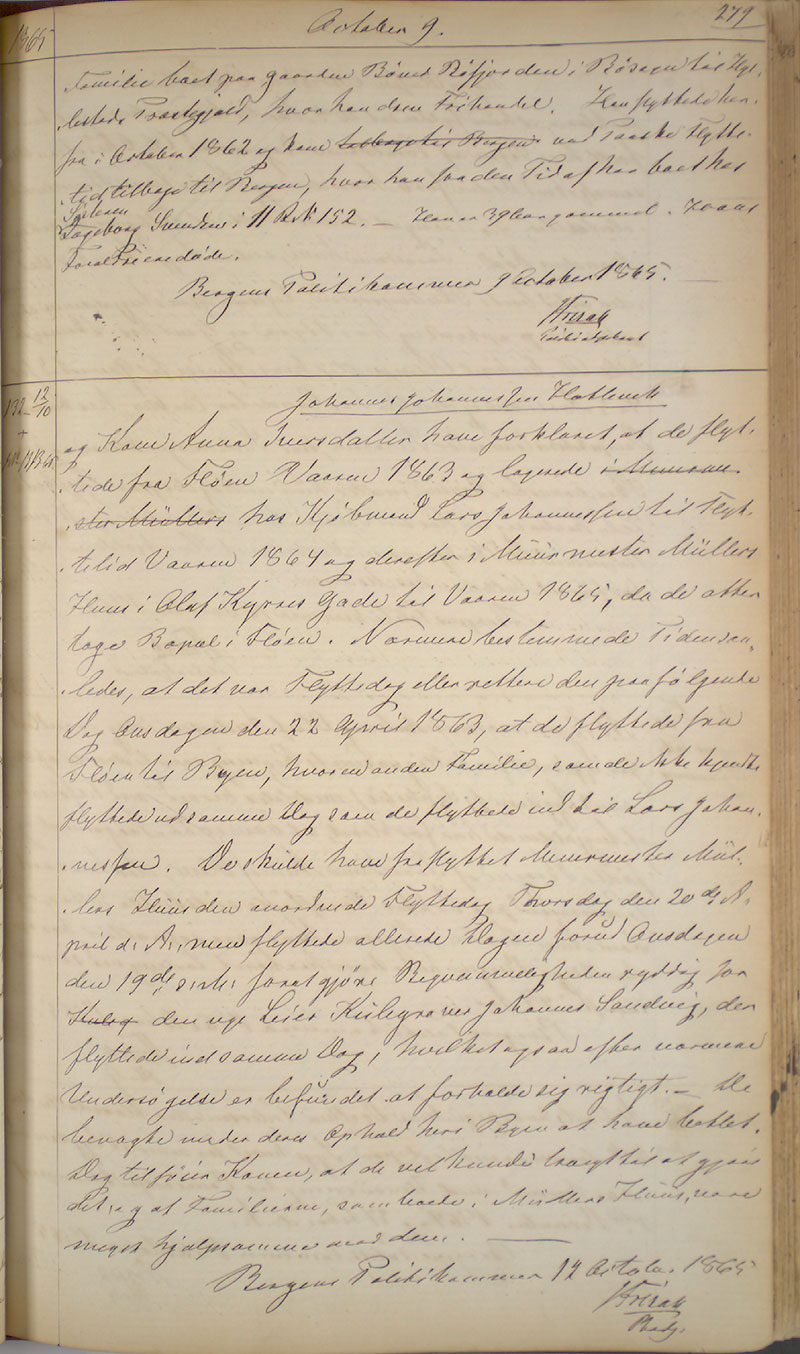 279
1865
October 9.
Familie boet paa gaarden Bönes Röfjorden i Bösogn til Hyl-
lestads Præstegjeld, hvor han drev Frihandel. Han flyttede her-
fra i October 1862 og kom tilbage til Bergen ved Paaske Flytte-
tid tilbage til Bergen, hvor han fra den Tid af har boet hos
Ingeborg Svendsen i 11 R. N 152. — Han er 39 Aar gammel.
Forældrene døde.
Bergens Politikammer 9 October 1865.
132 - 12/10
Johannes Johannessen
og Kone Anna Iversdatter have forklaret, at de flyt-
tede fra Fløen Vaaren 1863 og logerede i Muurme-
ster Müllers hos Kjøbmand Lars Johannessen til Flyt-
tetid Vaaren 1864 og derefter i Muurmester Müllers
Huus i Olaf Kyrres Gade til Vaaren 1865, da de atter
toge Bopæl i Fløen. Nærmere bestemmede Tiden saa-
ledes, at det var Flyttedag eller rettere den paafølgende
Dag Onsdagen den 22 April 1863, at de flyttede fra
Fløen til Byen, hvor en anden Familie, som de ikke kjendte
flyttede ud samme Dag som de flyttede ind til Lars Johan-
nessen. De skulde have fraflyttet Muurmester Mül-
lers Huus den anordnede Flyttedag Thorsdag den 20de A-
pril d: A:, men flyttede allerede Dagen forud Onsdagen
den 19de s: M: for at gjøre Beqvemmeligheden ryddig for
den nye Leier Johannes Sandvig, der
flyttede ind samme Dag, hvilket ogsaa efter nærmere
Undersøgelse er befundet at forholde sig rigtigt. — De
benegte under deres Ophold her i Byen at have betlet.
Dog tilføier Konen, at de vel kunde trængt til at gjøre
det, og at Familierne, som boede i Müllers Huus, vare
meget hjælpsomme mod dem. —
Bergens Politikammer 12 October 1865